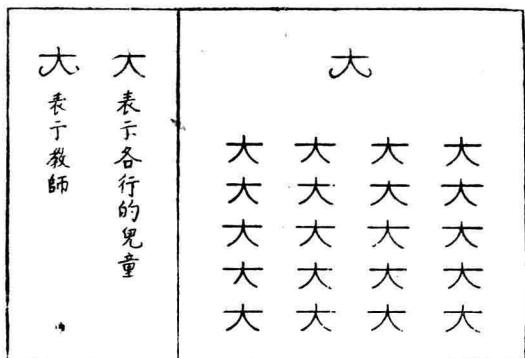 大
大 大 大 大
大 大 大 大
大 大 大 大
大 大 大 大
大 大 大 大
大 表示各行的兒童
大 表示教師